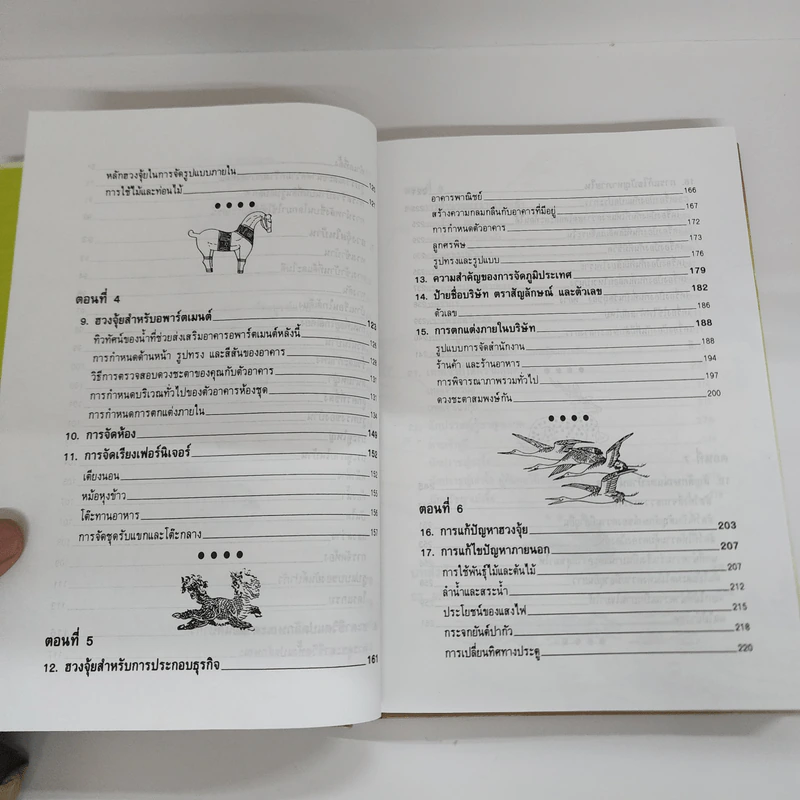 หลักฮวงจุ้ยในการจัดรูปแบบภายใน
การใช้ไม้และท่อนไม้ 121
ตอนที่ 4
9. ฮวงจุ้ยสำหรับอพาร์ตเมนต์
ทิวทัศน์ของน้ำที่ช่วยส่งเสริมอาคารอพาร์ตเมนต์หลังนี้
การกำหนดด้านหน้า รูปทรง และสีสันของอาคาร
วิธีการตรวจสอบดวงชะตาของคุณกับตัวอาคาร
การกำหนดบริเวณทั่วไปของตัวอาคารห้องชุด
การกำหนดการตกแต่งภายใน
10. การจัดห้อง
11. การจัดเรียงเฟอร์นิเจอร์
เตียงนอน
หม้อหุงข้าว
โต๊ะทานอาหาร
การจัดชุดรับแขกและโต๊ะกลาง
ตอนที่ 5
12. ฮวงจุ้ยสำหรับการประกอบธุรกิจ 161
อาคารพาณิชย์ 166
สร้างความกลมกลืนกับอาคารที่มีอยู่ 167
การกำหนดตัวอาคาร 172
ลูกศรพิษ 173
รูปทรงและรูปแบบ 176
13. ความสำคัญของการจัดภูมิประเทศ 179
14. ป้ายชื่อบริษัท ตราสัญลักษณ์ และตัวเลข 182
ตัวเลข 186
15. การตกแต่งภายในบริษัท 188
รูปแบบการจัดสำนักงาน 188
ร้านค้า และร้านอาหาร 194
การพิจารณาภาพรวมทั่วไป 197
ดวงชะตาสมพงษ์กัน 200
ตอนที่ 6
16. การแก้ปัญหาฮวงจุ้ย 203
17. การแก้ไขปัญหาภายนอก 207
การใช้พันธุ์ไม้และต้นไม้ 207
ลำน้ำและสระน้ำ 212
ประโยชน์ของแสงไฟ 215
กระจกยันต์ปากัว 218
การเปลี่ยนทิศทางประตู 220